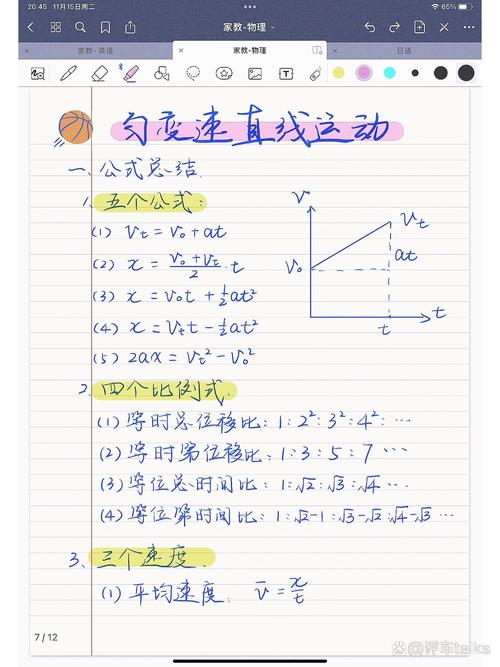 20:45 11月15日周二
65%
家教-物理
家教-英语
家教-物理
日语
匀变速直线运动
一、公式总结.
1、五个公式:
(1) Vt=V₀+at
(2) x=(V₀+Vt)/2·t
(3) x=V₀t+½at²
(4) x=Vtt-½at²
(5) 2ax=Vt²-V₀²
V
Vt
at
V₀
t
t
2、四个比例式.
(1) 等时总位移比: 1:2²:3²:4²:…
(2) 等时第位移比: 1:3:5:7…
(3) 等位总时间比: 1:√2:√3:√4…
(4) 等位第时间比: 1:√2-1:√3-√2:√4-√3…
3、三个速度.
(1) 平均速度: v̄=x/t
7/12
@评车talks